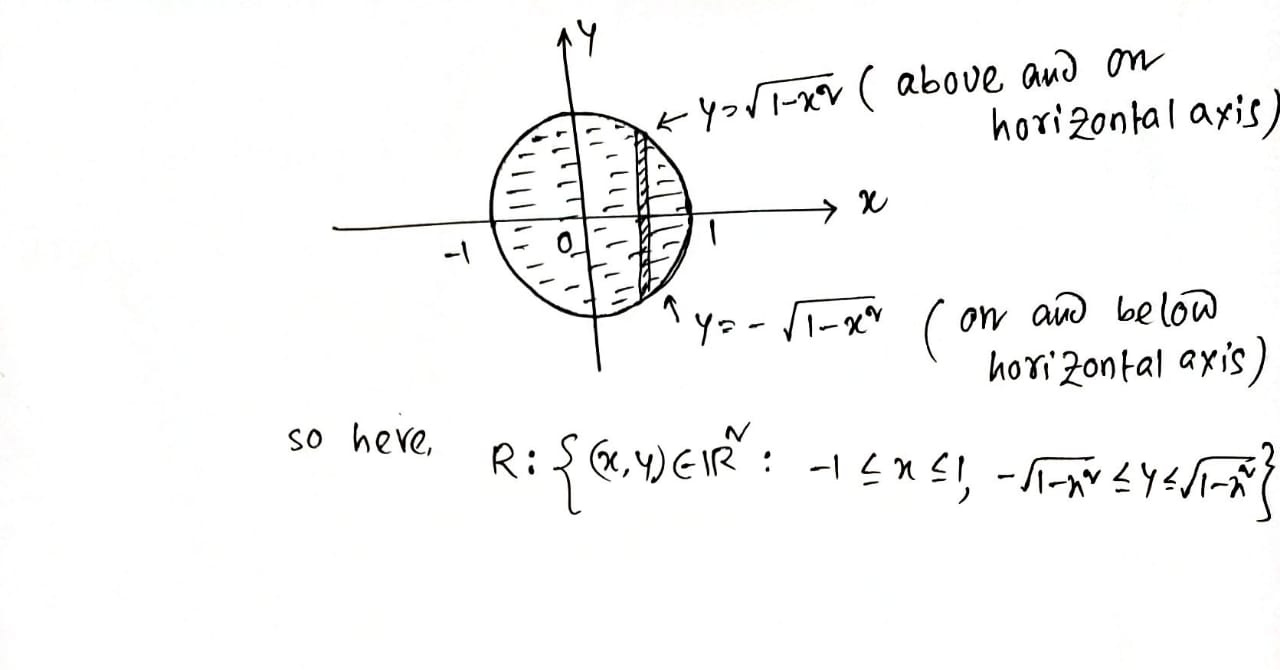 y
← y=√1-x² ( above and on
horizontal axis)
x
-1
0
1
↑ y=-√1-x² ( on and below
horizontal axis)
so here, R: {(x,y)∈ℝ² : -1≤x≤1, -√1-x² ≤y≤√1-x²}